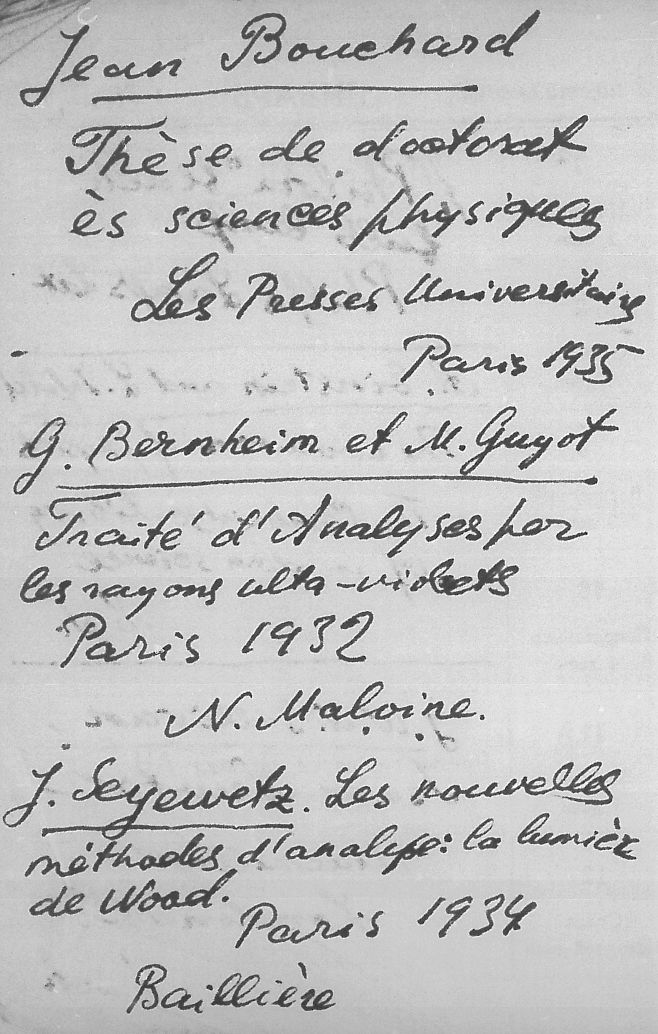 Jean Bouchard
Thèse de doctorat
ès sciences physiques
Les Presses Universitaires
Paris 1935
G. Bernheim et M. Guyot
Traité d'Analyses par
les rayons ulta-violets
Paris 1932
N. Maloine.
J. Seyewetz. Les nouvelles
méthodes d'analyse: la lumière
de Wood.
Paris 1934
Baillière